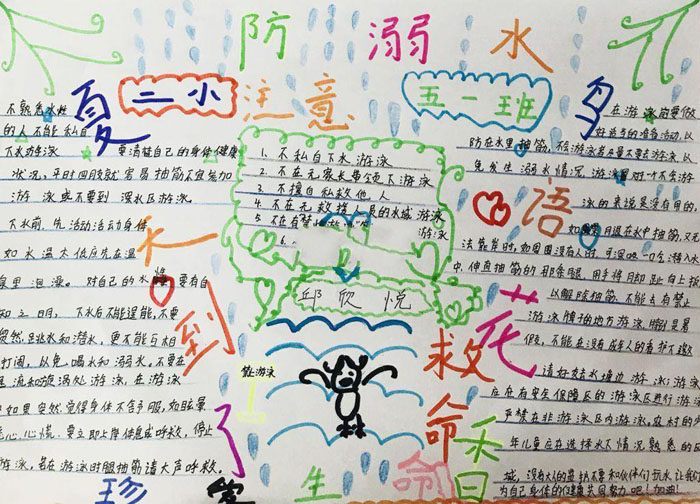 防溺水
二小
注意
五一班
夏
天
到
了
珍
生
命
鸟
语
花
香
救
命
不熟悉水性
的人不能私自
下水游泳
要清楚自己的身体健康
状况，平时四肢就容易抽筋不宜参加
游泳或不要到深水区游泳。
下水前，先活动活动身体
如水温太低应先在
对自己的水性要有自
知之明，下水后不能逞能，不要
贸然跳水和潜水，更不能与相
打闹，以免喝水和溺水。不要在
急流和漩涡处游泳，在游泳
中如果突然觉得身体不舒服，如眩晕
恶心，心慌，要立即上岸休息或呼救，
游泳，若在游泳时腿抽筋请大声呼救。
1. 不私自下水游泳
2. 不在无家长带领下游泳
3. 不擅自私救他人
4. 不在无救援人员的水域游泳
6.
邱欣悦
能游泳
在游泳前要做
好适当的准备活动，以
防在水里抽筋，不会游泳者尽量不要去游泳，以
免发生溺水情况，游泳圈对一个不会游
泳的来说是没有用的，
法靠岸时，如周围没有人时，可深吸一口气潜入水
中，伸直抽筋的那条腿，用手将脚趾向上扳
以解除抽筋。不能去有禁
游泳牌子的地方游泳，特别是暑
假，不能在没有成年人的看护下进
应在有安全保障区的游泳区进行游泳
严禁在非游泳区内游泳，农村的少
年儿童应在选择水下情况熟悉的
域，没有大人的监护不要和伙伴们玩水，让我们
为自己身体的健康共同努力吧！加油！